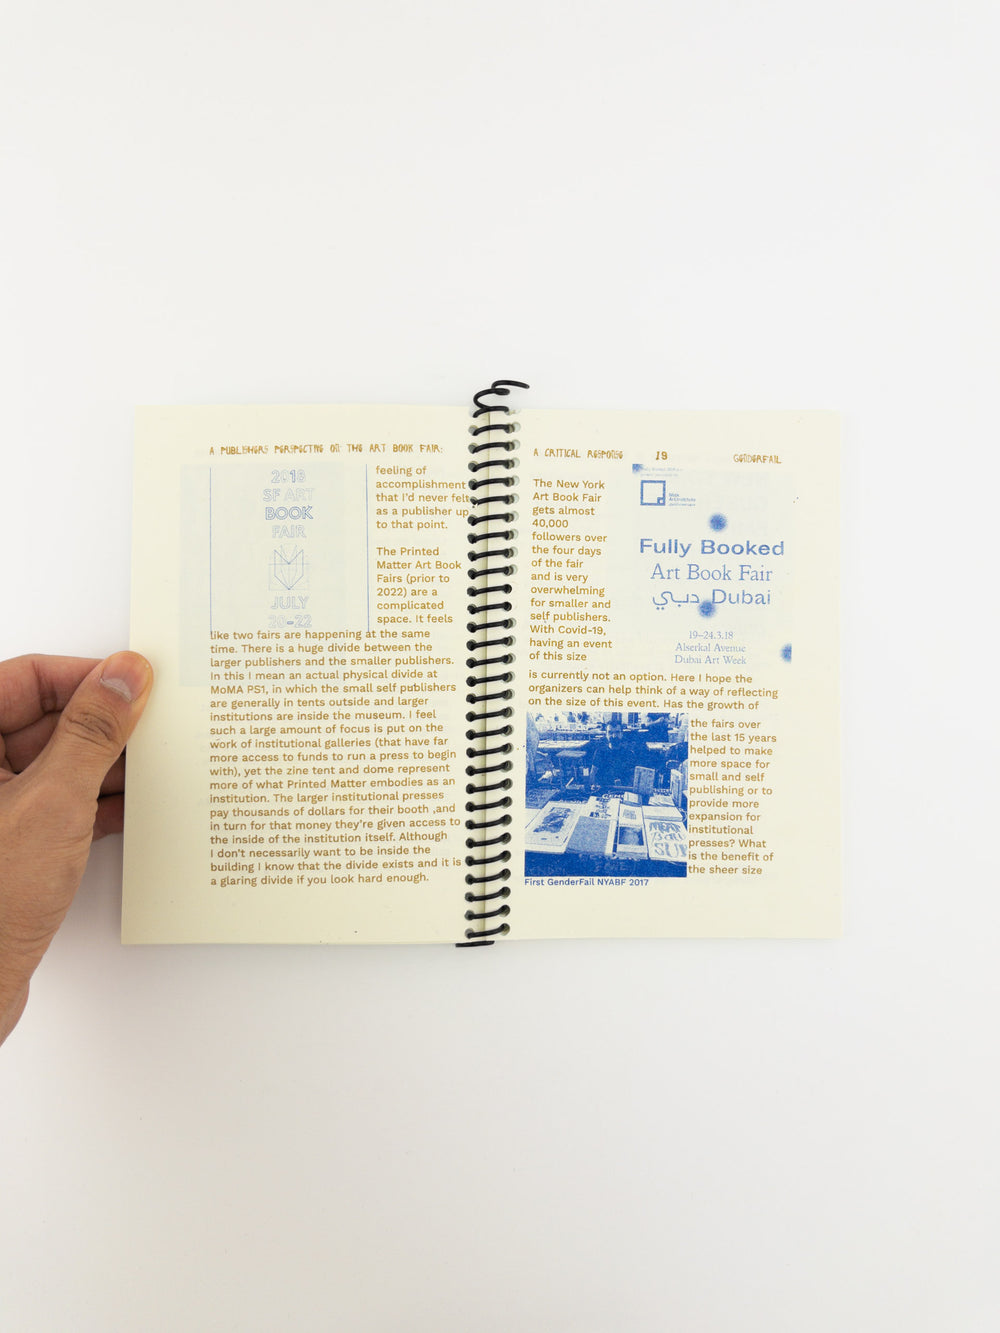 A PUBLISHERS PERSPECTIVE ON THE ART BOOK FAIR:
2018
SF ART
BOOK
FAIR
JULY
20–22
feeling of
accomplishment
that I'd never felt
as a publisher up
to that point.
The Printed
Matter Art Book
Fairs (prior to
2022) are a
complicated
space. It feels
like two fairs are happening at the same
time. There is a huge divide between the
larger publishers and the smaller publishers.
In this I mean an actual physical divide at
MoMA PS1, in which the small self publishers
are generally in tents outside and larger
institutions are inside the museum. I feel
such a large amount of focus is put on the
work of institutional galleries (that have far
more access to funds to run a press to begin
with), yet the zine tent and dome represent
more of what Printed Matter embodies as an
institution. The larger institutional presses
pay thousands of dollars for their booth ,and
in turn for that money they're given access to
the inside of the institution itself. Although
I don't necessarily want to be inside the
building I know that the divide exists and it is
a glaring divide if you look hard enough.
A CRITICAL RESPONSE 19 GENDERFAIL
The New York
Art Book Fair
gets almost
40,000
followers over
the four days
of the fair
and is very
overwhelming
for smaller and
self publishers.
With Covid-19,
having an event
of this size
Fully Booked
Art Book Fair
دبي Dubai
19–24.3.18
Alserkal Avenue
Dubai Art Week
is currently not an option. Here I hope the
organizers can help think of a way of reflecting
on the size of this event. Has the growth of
the fairs over
the last 15 years
helped to make
more space for
small and self
publishing or to
provide more
expansion for
institutional
presses? What
is the benefit of
the sheer size
First GenderFail NYABF 2017